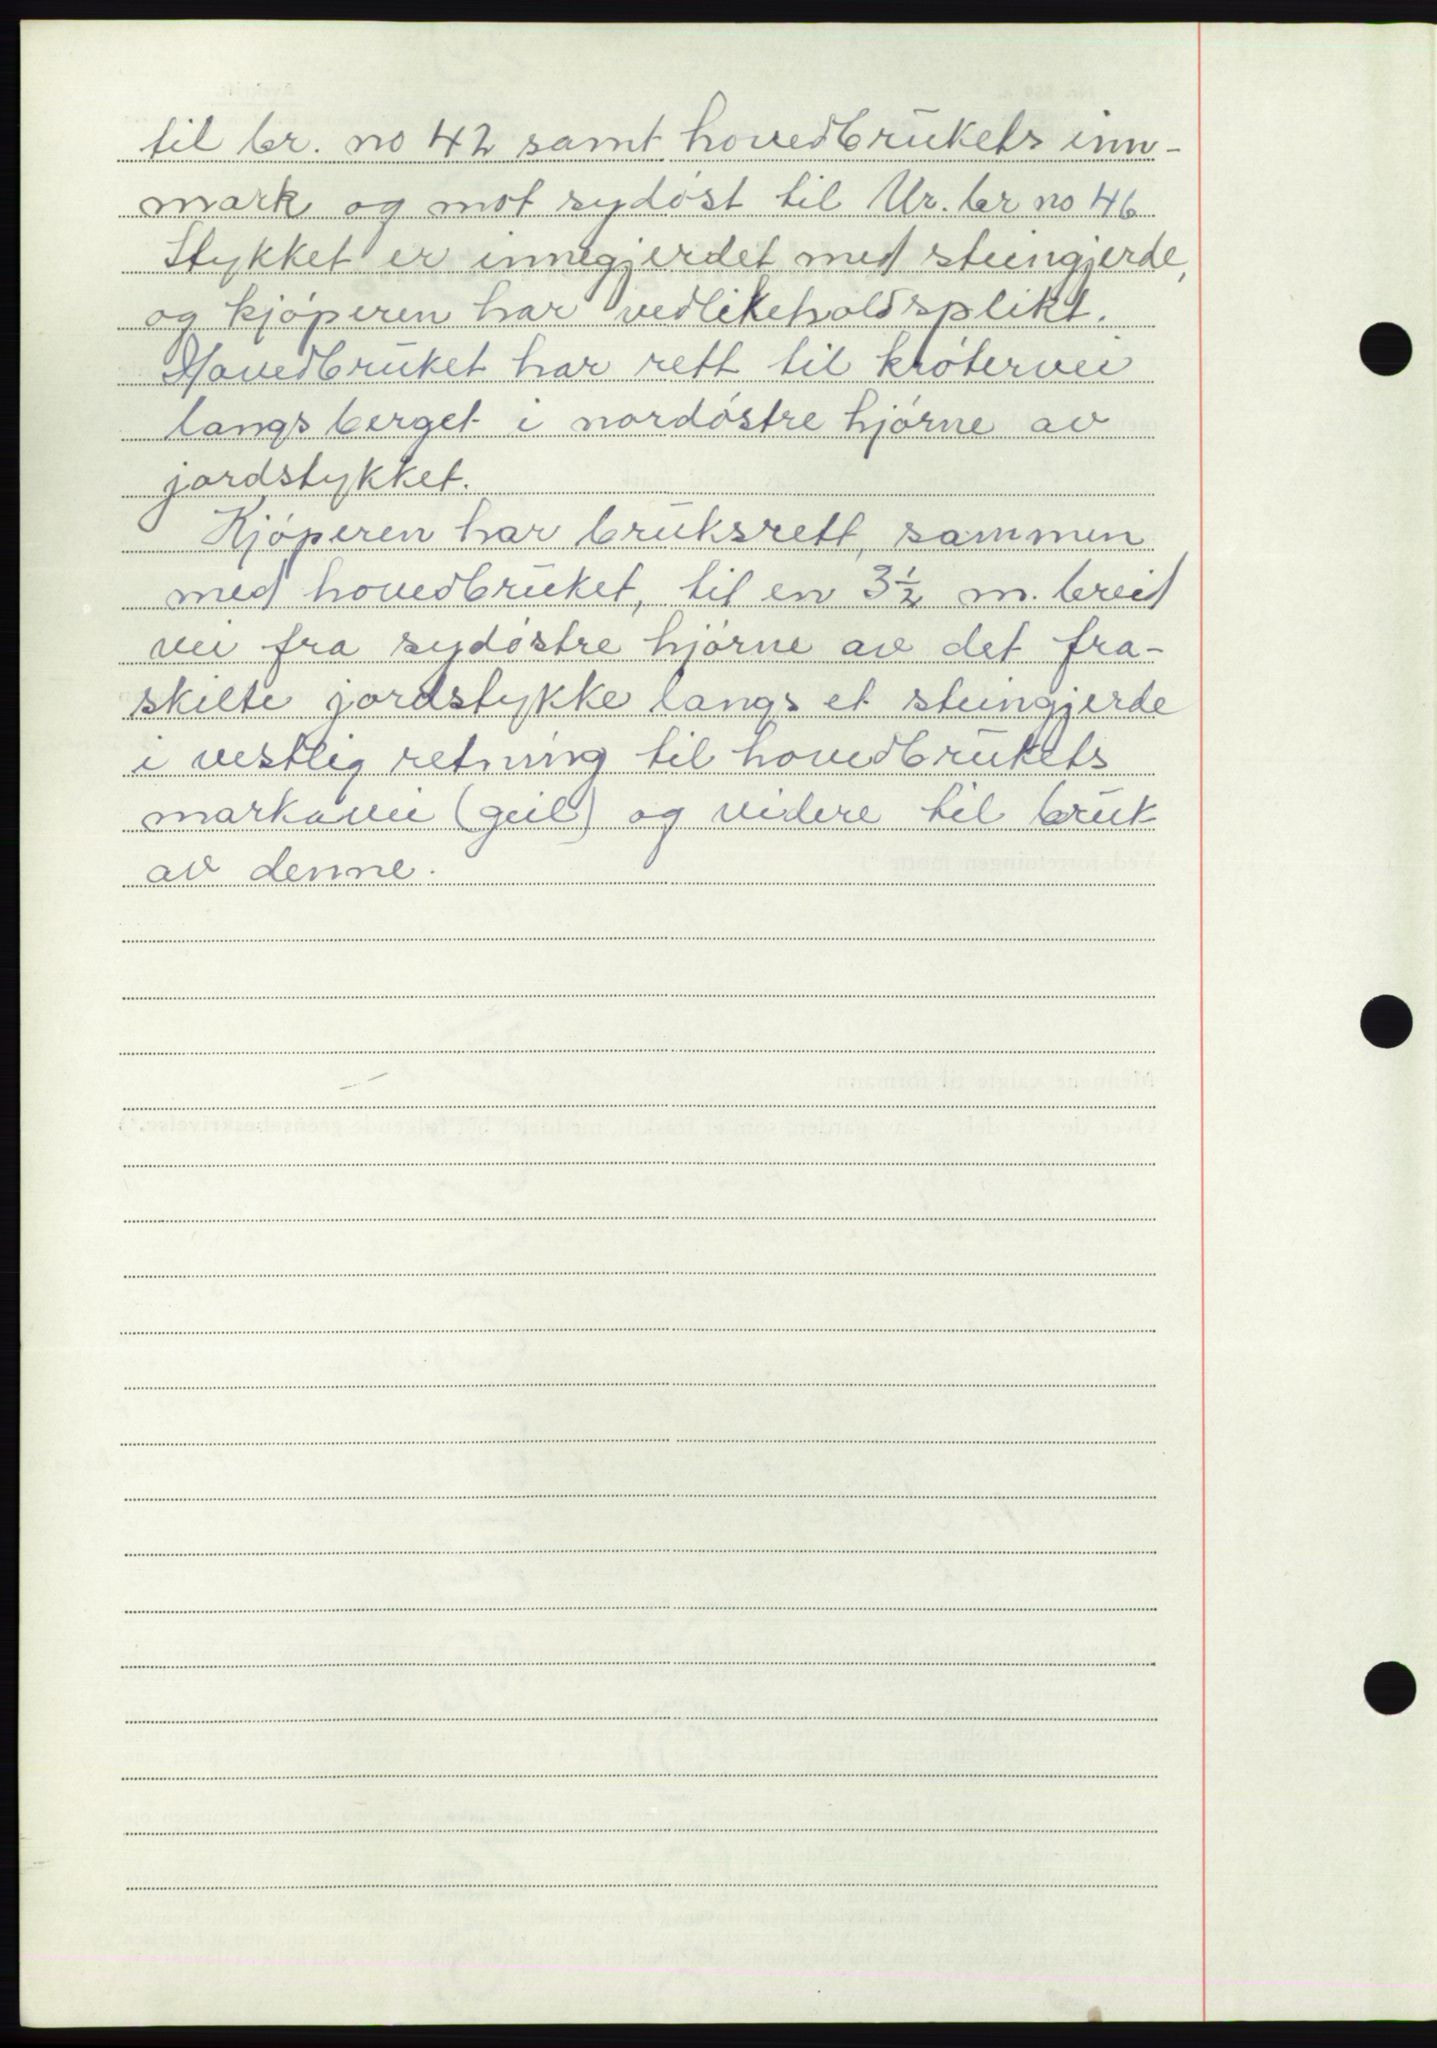 til br. no 42 samt hovedbrukets inn-
mark og mot sydöst til Ur. br no 46
Stykket er innegjerdet med steingjerde,
og kjöperen har vedlikeholdsplikt.
Hovedbruket har rett til krötervei
langs berget i nordöstre hjörne av
jordstykket.
Kjöperen har bruksrett, sammen
med hovedbruket, til en 3½ m. breid
vei fra sydöstre hjörne av det fra-
skilte jordstykke langs et steingjerde
i vestlig retning til hovedbrukets
markavei (geil) og videre til bruk
av denne.